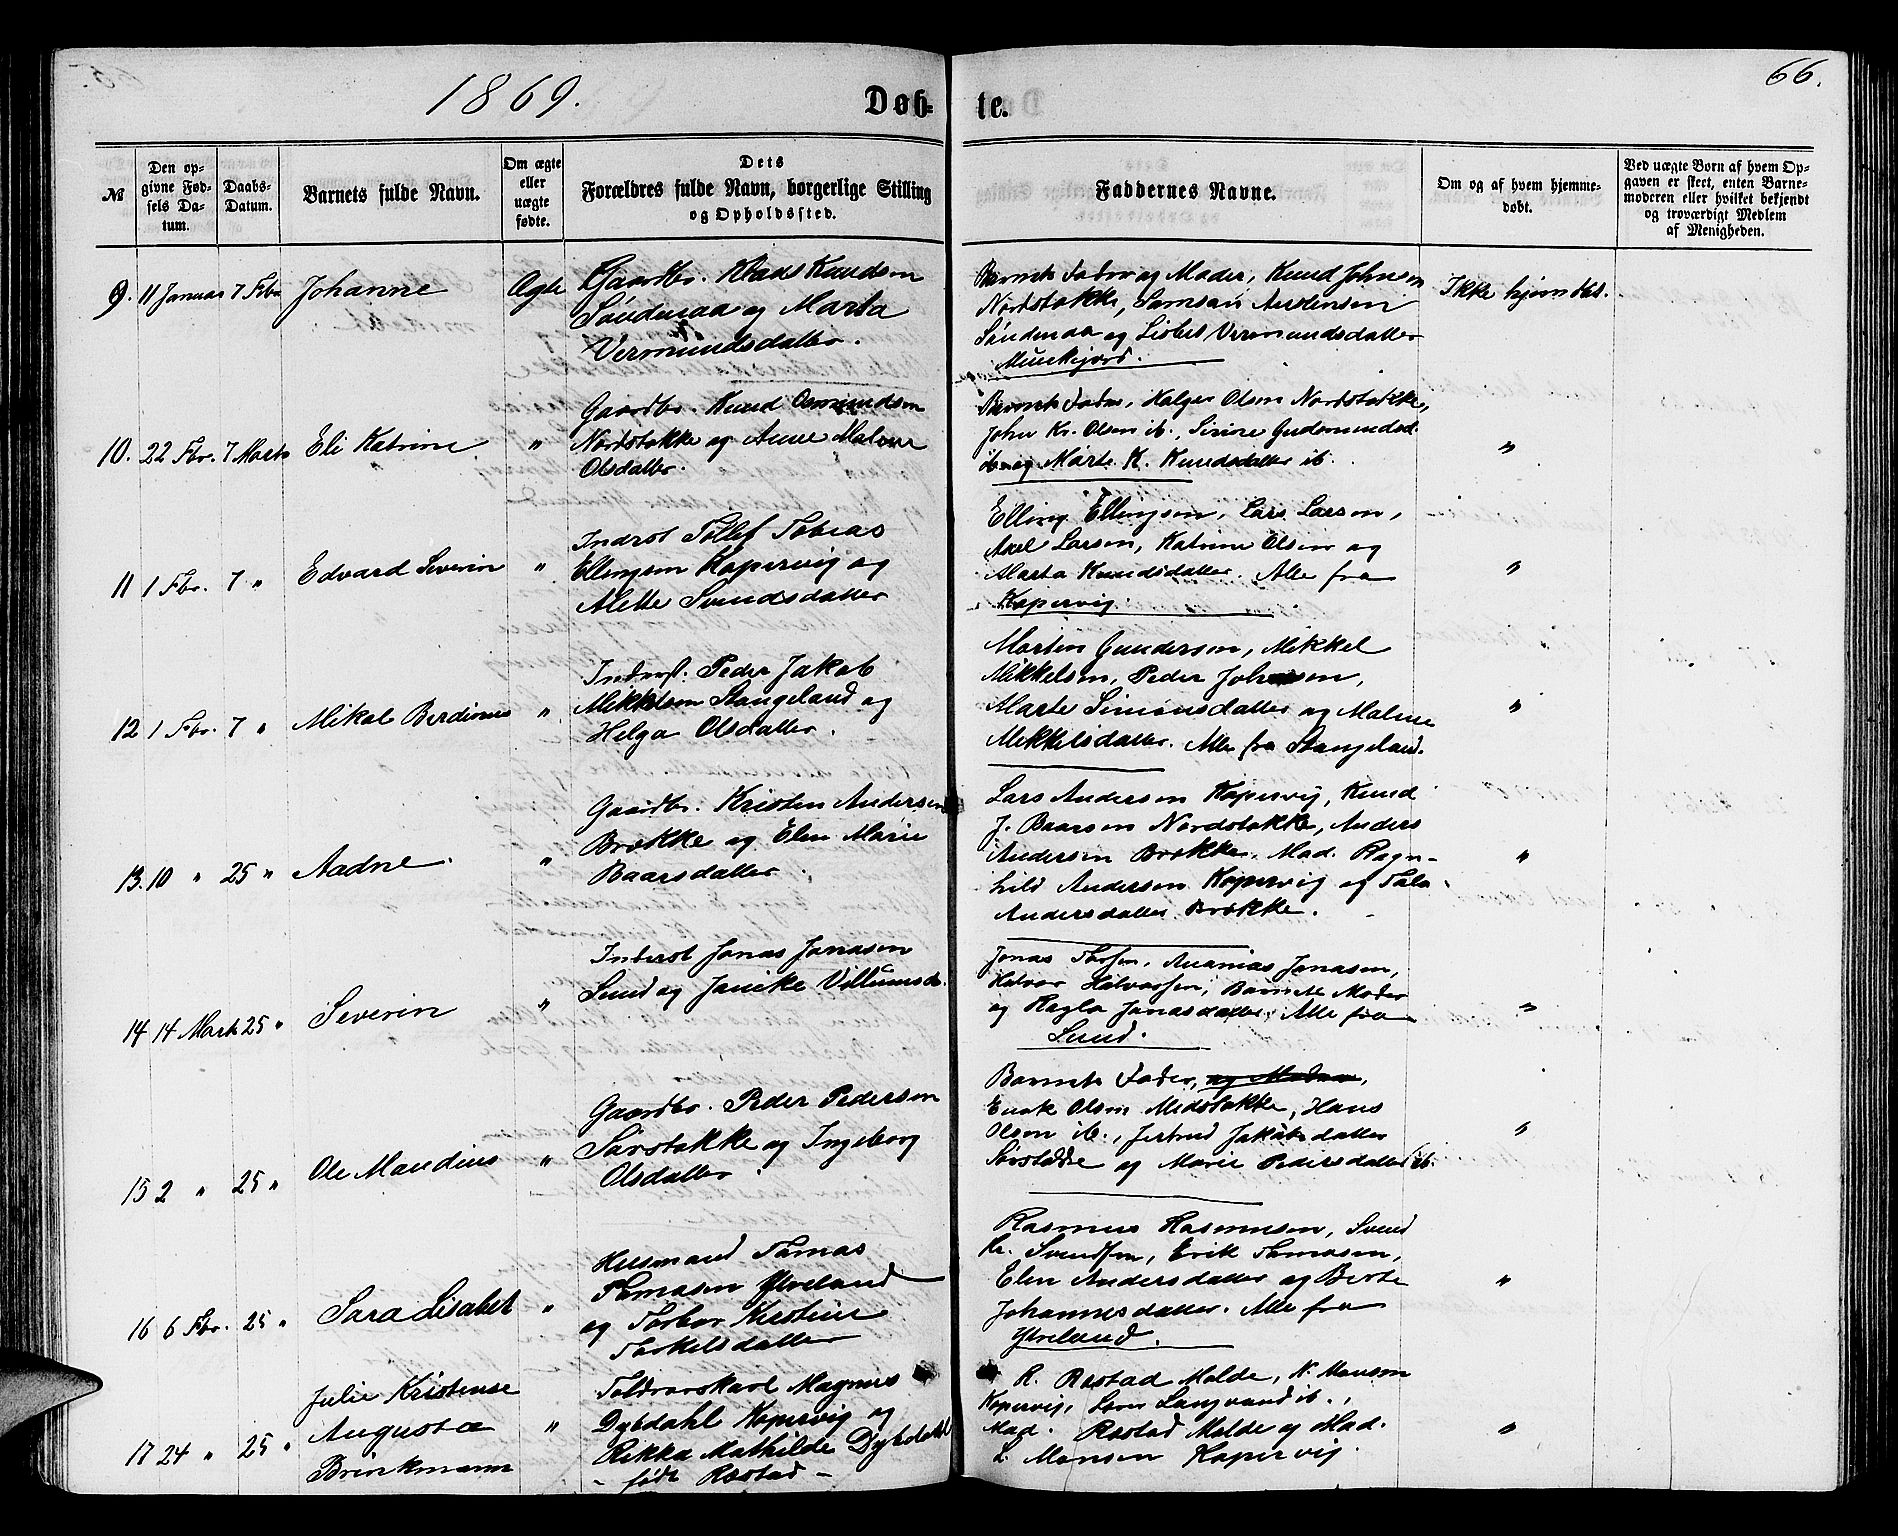 1869.
Døb-
te.
66.
№
Den op-
givne Fød-
sels Da-
tum.
Daabs-
Datum.
Barnets fulde Navn.
Om ægte
eller
uægte
fødte.
Dets
Forældres fulde Navn, borgerlige Stilling
og Opholdssted.
Faddernes Navne.
Om og af hvem hjemme-
døbt.
Ved uægte Børn af hvem Op-
gaven er skeet, enten Barne-
moderen eller hvilket bekjendt
og troværdigt Medlem
af Menigheden.
9. 11 Januar 7 Fbr. Johanne Ægte
Gaardbr. Klaus Knudsen
Søndenaa og Marta
Vermundsdatter.
Barnets Fader og Moder, Knud Johnsen
Nordstokke, Samson Austensen
Søndenaa og Lisbet Vermundsdatter
Munkejord.
Ikke hjemdbt.
10. 22 Fbr. 7 Marts Eli Katrine "
Gaardbr. Knud Osmundsen
Nordstokke og Anne Malene
Olsdatter.
Barnets Fader, Holger Olsen Nordstokke,
John Kr. Olsen ib., Sirine Gudmundsd.
ib. og Marte K. Knudsdatter ib.
"
11 1 Fbr. 7 " Edvard Severin "
Inderst Tollef Tobias
Ellingsen Kopervig og
Mette Svendsdatter
Elling Ellingsen, Lars Larsen,
Axel Larsen, Katrine Olsen og
Marta Knudsdatter. Alle fra
Kopervig.
"
12 1 Fbr. 7 " Mikal Berdinus "
Inderst. Peder Jakob
Mikkelsen Stangeland og
Helga Olsdatter.
Morten Gundersen, Mikkel
Mikkelsen, Peder Johnsen,
Marte Simonsdatter og Malene
Mikkelsdatter. Alle fra Stangeland.
"
13. 10 " 25 " Aadne. "
Gaardbr. Kristen Andersen
Brekke og Elen Marie
Baarsdatter.
Lars Andersen Kopervig, Knud
J. Baarsen Nordstokke, Anders
Andersen Brekke, Mad. Ragn-
hild Andersen Kopervig og Tala
Andersdatter Brekke.
"
14 14 Marts 25 " Severin "
Inderst Jonas Jonasen
Sund og Janike Villumsdr.
Jonas Ananias Jonasen,
Halvor Halvorsen, Barnets Moder
og Ragla Jonasdatter. Alle fra
Sund.
"
15 2 " 25 " Ole Mandius "
Gaardbr. Peder Pedersen
Sørstokke og Ingeborg
Olsdatter
Barnets Fader, og Moder,
Enok Olsen Medstokke, Hans
Olsen ib., Jertrud Jakobsdatter
Sørstokke og Marie Pedersdatter ib.
"
16 6 Fbr. 25 " Sara Lisabet "
Husmand Tomas
Tomasen Ytreland
og Torbor Kristine
Torkelsdatter
Rasmus Rasmusen, Svend
Kr. Svendsen, Erik Tomasen,
Elen Andersdatter og Berte
Johannesdatter. Alle fra
Ytreland.
"
17 24 " 25 "
Julie Kristense
Augusta
Brinkmann
"
Toldvorskarl Magnus
Dybdahl Kopervig og
Rikka Mathilde Dybdahl
– født Røstad –
R. Røstad Molde, N. Monsen
Kopervig, Langvand ib.,
Mad. Røstad Molde og Mad.
L. Monsen Kopervig.
"